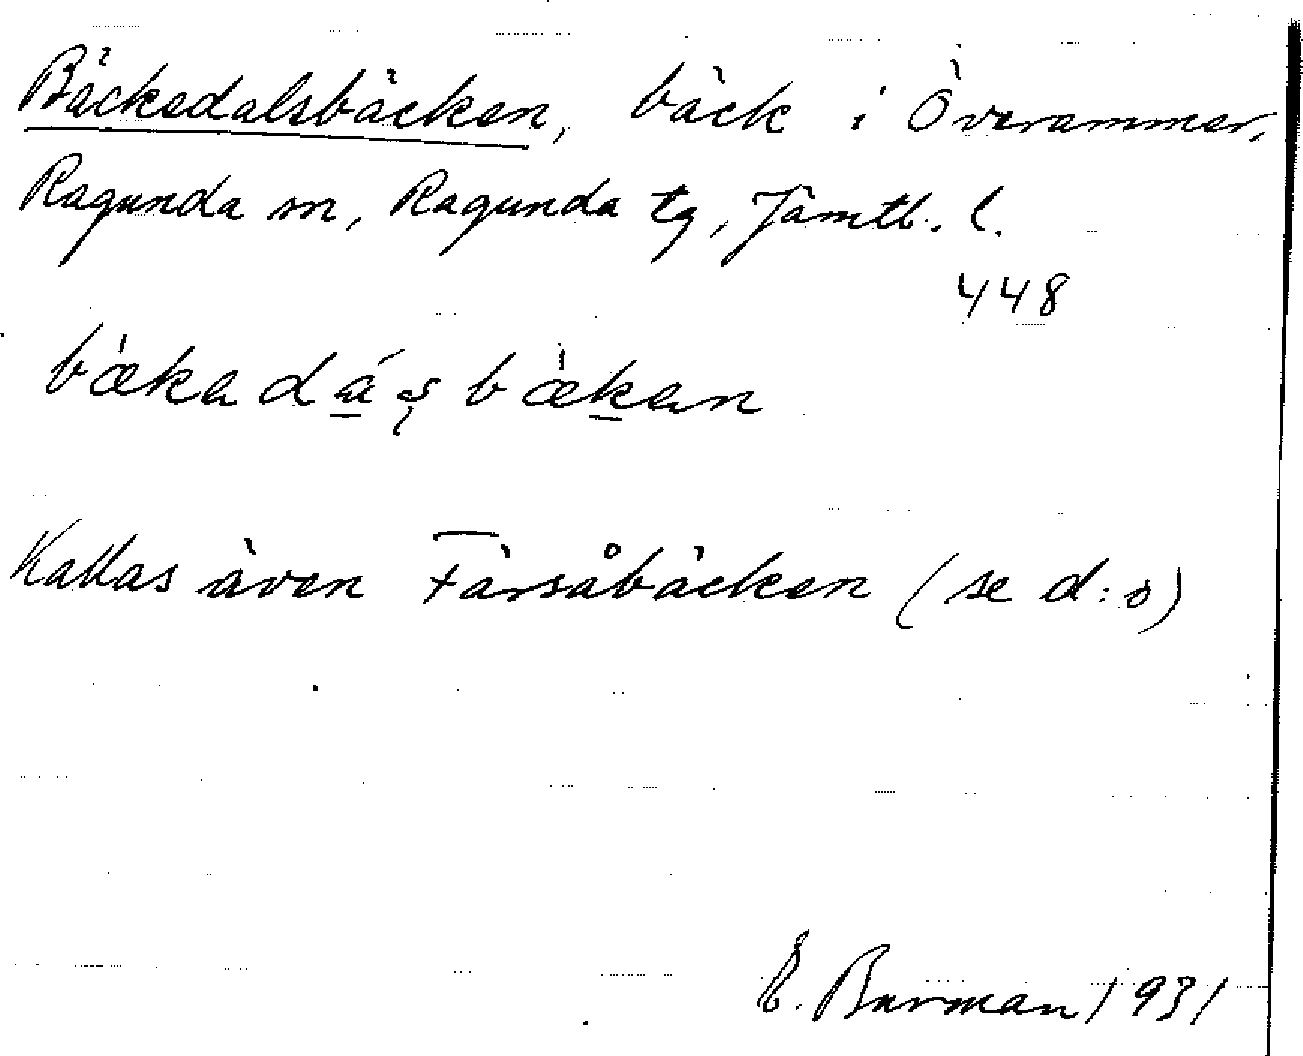 Bäckedalsbäcken, bäck i Överammer,
Ragunda sn, Ragunda tg, Jämtl. l.
448
bækadáʂbækan
Kallas även Färsåbäcken (se d:o)
E. Burman 1931